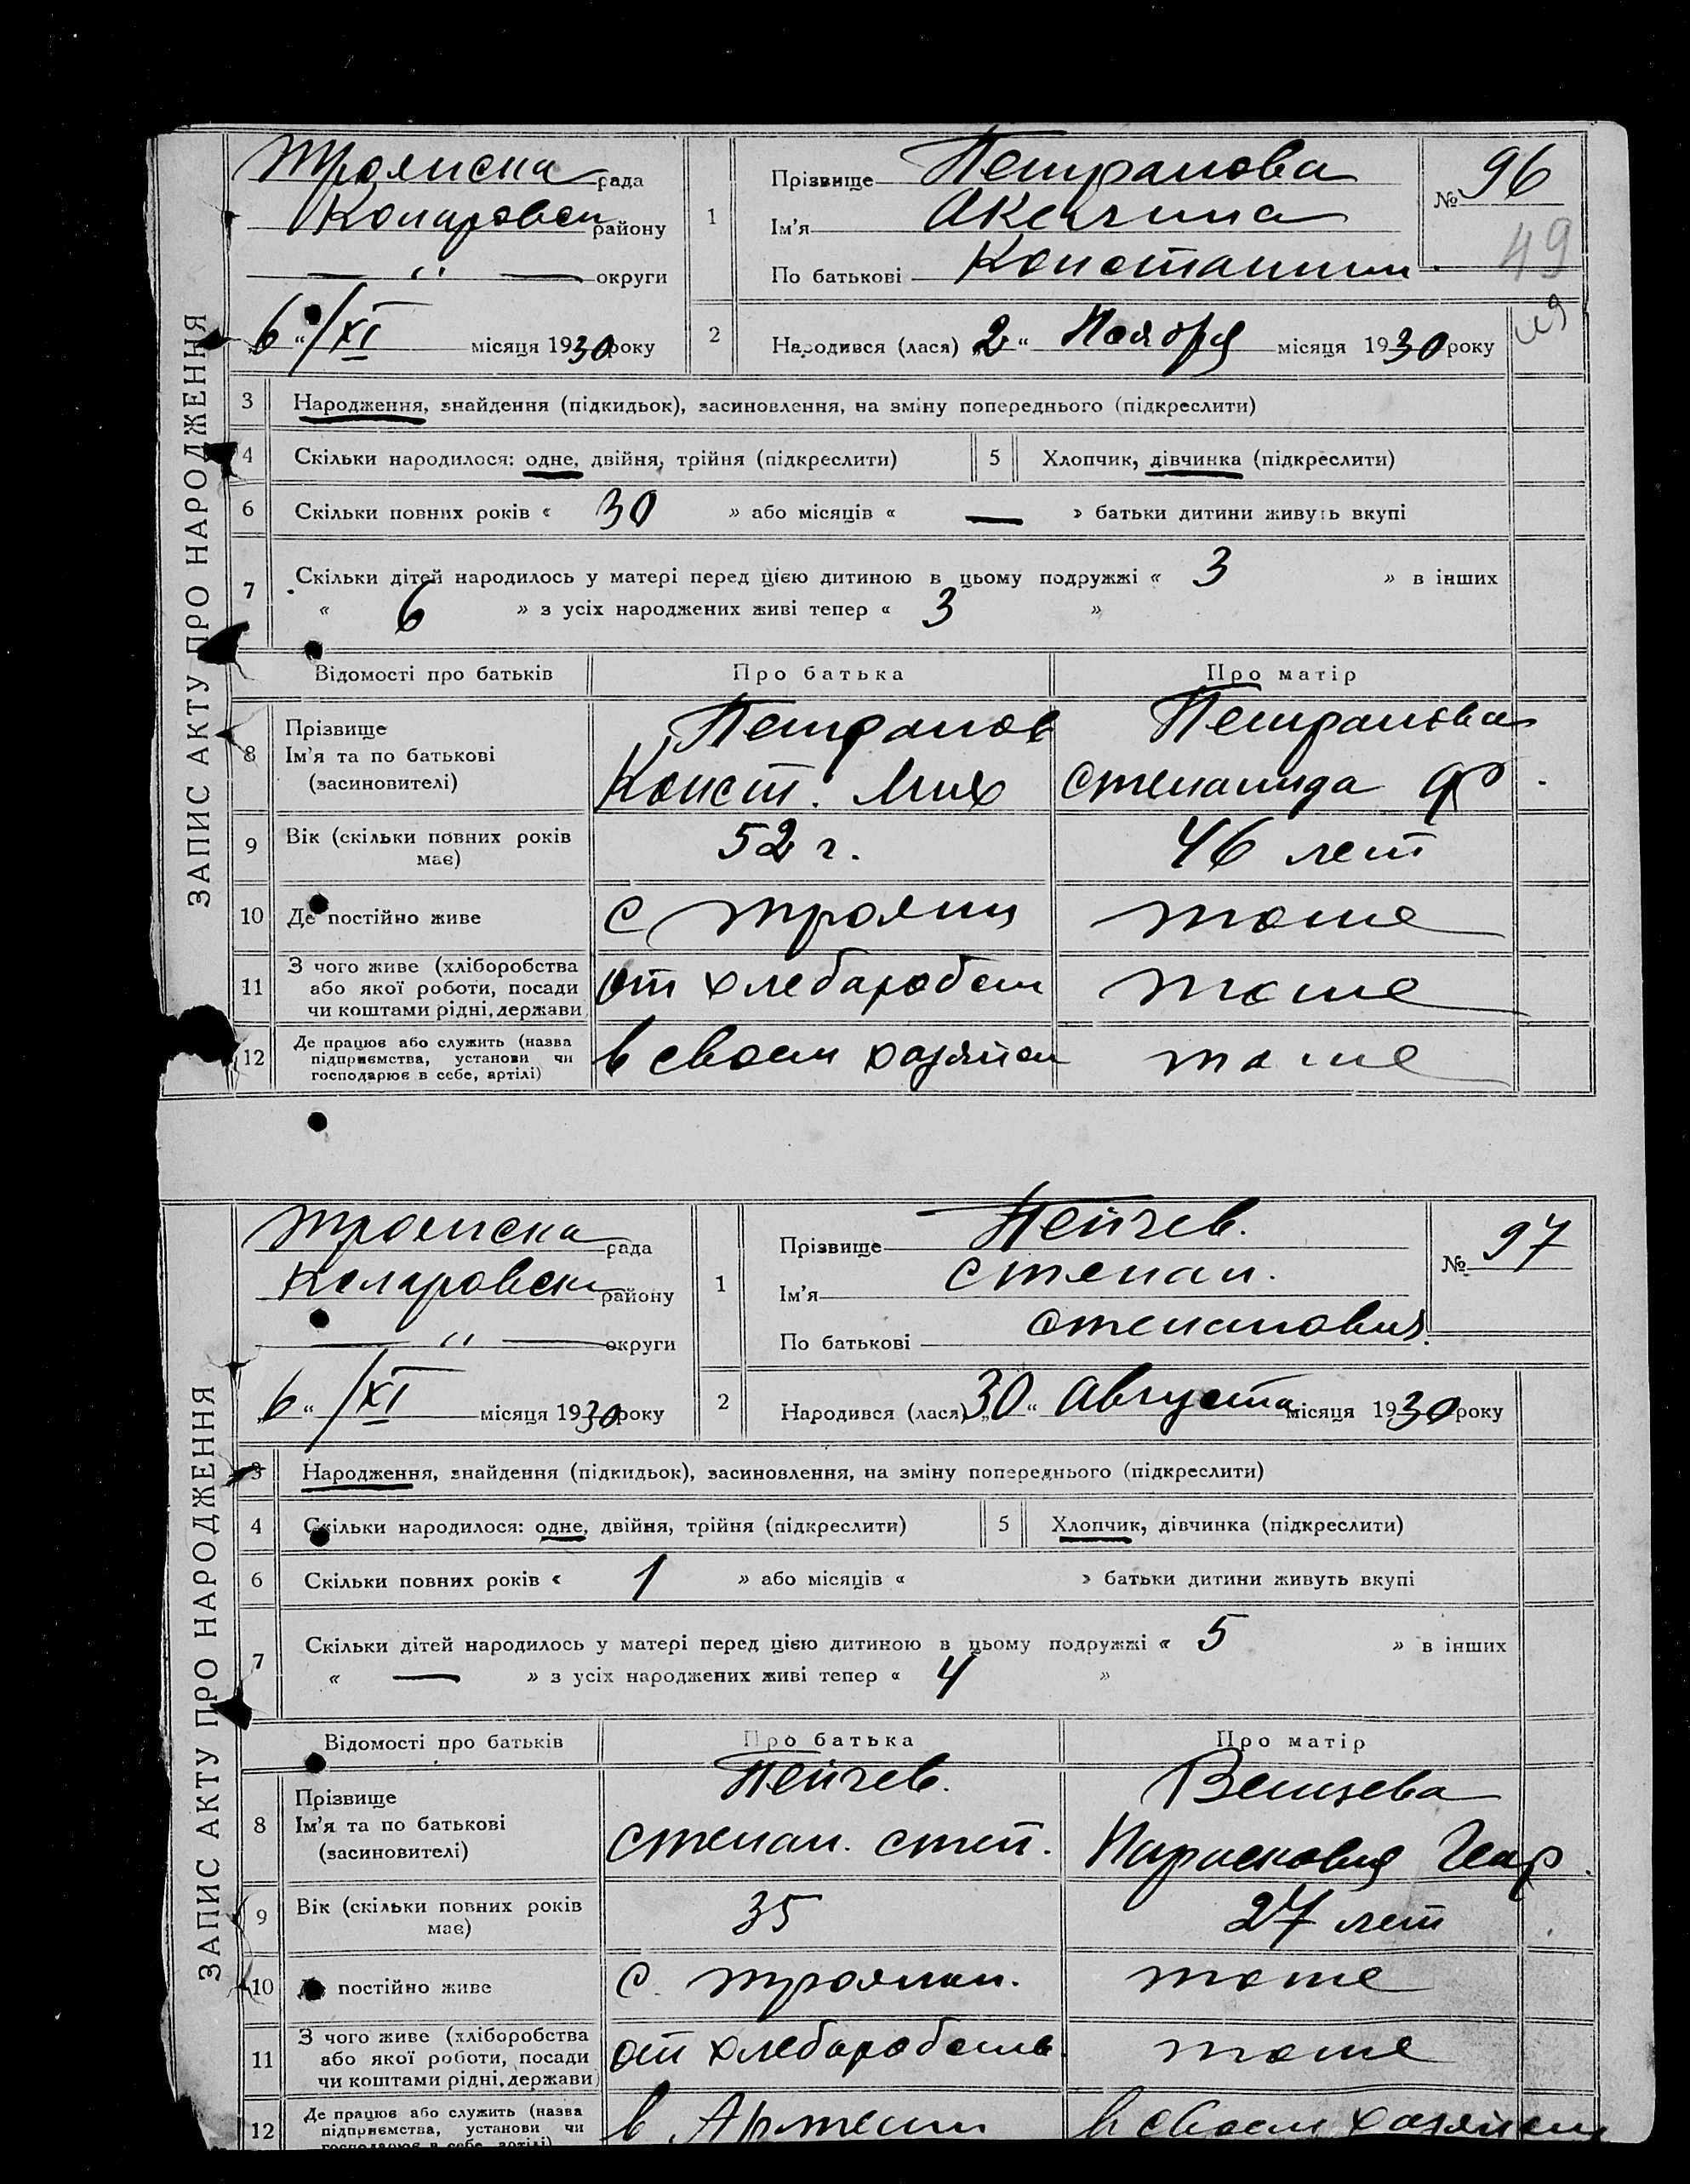 ЗАПИС АКТУ ПРО НАРОДЖЕННЯ
Троянска рада
Коларовск району
— " — округи
„6“ /XI місяця 1930 року
1 Прізвище Петранова
Ім'я
По батькові Константин.
№ 96
49
2 Народився (лася) „2“ Ноября місяця 1930 року
3 Народження, знайдення (підкидьок), засиновлення, на зміну попереднього (підкреслити)
4 Скільки народилося: одне, двійня, трійня (підкреслити) 5 Хлопчик, дівчинка (підкреслити)
6 Скільки повних років « 30 » або місяців « — » батьки дитини живуть вкупі
7 Скільки дітей народилось у матері перед цією дитиною в цьому подружжі « 3 » в інших
« 6 » з усіх народжених живі тепер « 3 »
Відомості про батьків Про батька Про матір
8 Прізвище Ім'я та по батькові (засиновителі) Петранов Конст. Мих Петранова Степанида Ф.
9 Вік (скільки повних років має) 52 г. 46 лет
10 Де постійно живе с Троян тоже
11 З чого живе (хліборобства або якої роботи, посади чи коштами рідні, держави) от хлебаробст тоже
12 Де працює або служить (назва підприємства, установи чи господарює в себе, артілі) в своем хазяйст тоже
ЗАПИС АКТУ ПРО НАРОДЖЕННЯ
Троянска рада
Коларовск району
— " — округи
„6“ /XI місяця 1930 року
1 Прізвище Пейчев.
Ім'я Степан.
По батькові Степанович.
№ 97
2 Народився (лася) „30“ Августа місяця 1930 року
3 Народження, знайдення (підкидьок), засиновлення, на зміну попереднього (підкреслити)
4 Скільки народилося: одне, двійня, трійня (підкреслити) 5 Хлопчик, дівчинка (підкреслити)
6 Скільки повних років « 1 » або місяців « » батьки дитини живуть вкупі
7 Скільки дітей народилось у матері перед цією дитиною в цьому подружжі « 5 » в інших
« — » з усіх народжених живі тепер « 4 »
Відомості про батьків Про батька Про матір
8 Прізвище Ім'я та по батькові (засиновителі) Пейчев. Степан. Степ. Венцева Парасковия Геор.
9 Вік (скільки повних років має) 35 27 лет
10 Де постійно живе с. Троян. тоже
11 З чого живе (хліборобства або якої роботи, посади чи коштами рідні, держави) от хлебаробства тоже
12 Де працює або служить (назва підприємства, установи чи господарює в себе, артілі) в Артели в своем хазяйст